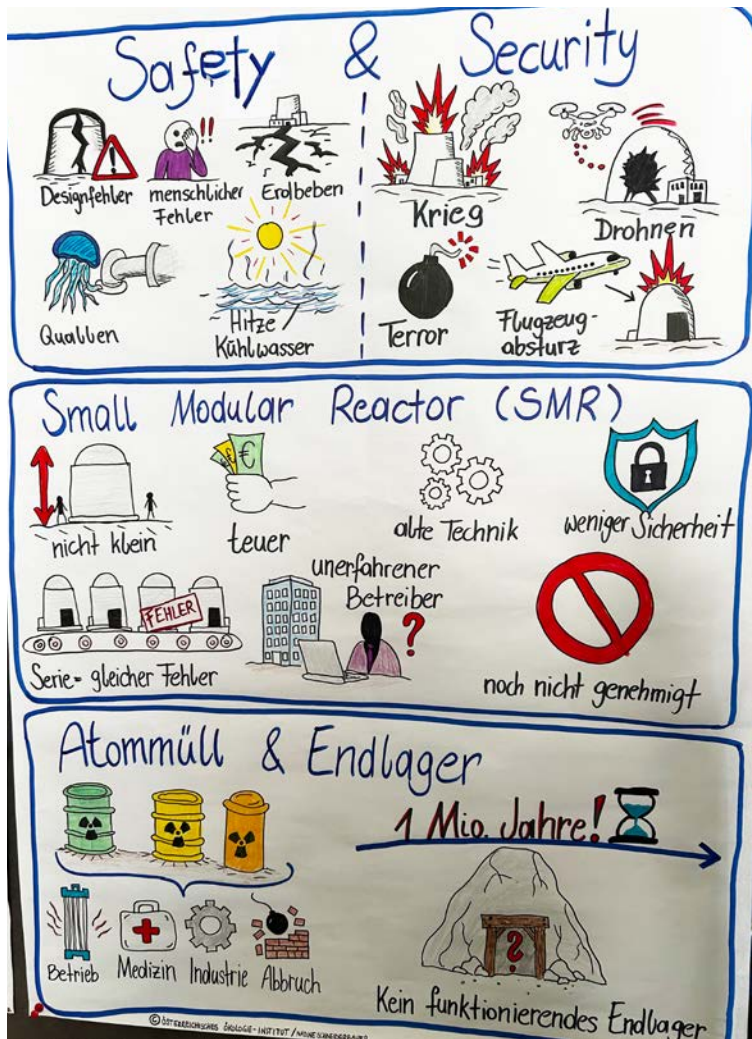 Safety & Security
Designfehler
menschlicher
Fehler
!!
Erdbeben
Quallen
Hitze /
Kühlwasser
Krieg
Drohnen
Terror
Flugzeug-
absturz
Small Modular Reactor (SMR)
nicht klein
€
teuer
alte Technik
weniger Sicherheit
FEHLER
Serie = gleicher Fehler
unerfahrener
Betreiber
?
noch nicht genehmigt
Atommüll & Endlager
1 Mio. Jahre!
Betrieb
Medizin
Industrie
Abbruch
?
Kein funktionierendes Endlager
© ÖSTERREICHISCHES ÖKOLOGIE-INSTITUT /